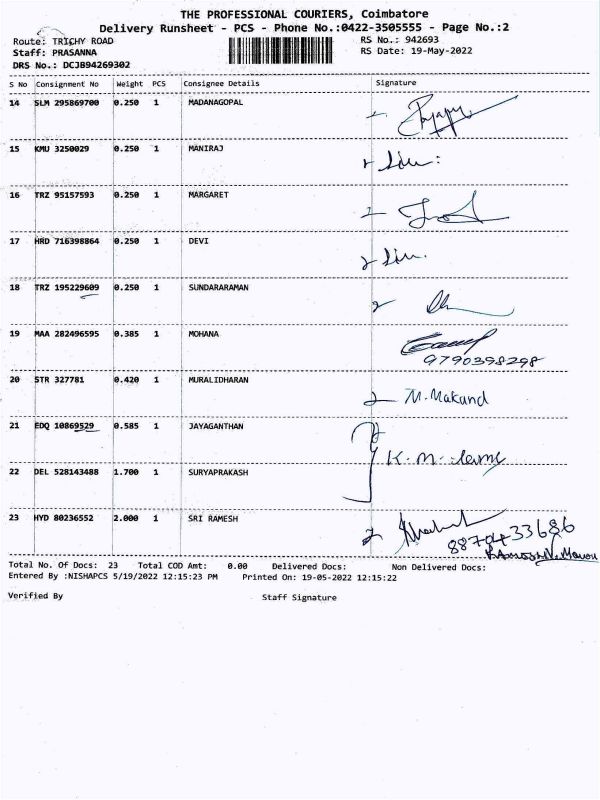 THE PROFESSIONAL COURIERS, Coimbatore
Delivery Runsheet - PCS - Phone No.:0422-3505555 - Page No.:2
Route: TRICHY ROAD
RS No.: 942693
Staff: PRASANNA
RS Date: 19-May-2022
DRS No.: DCJB94269302
S No Consignment No Weight PCS Consignee Details Signature
14 SLM 295869700 0.250 1 MADANAGOPAL
15 KMU 3250029 0.250 1 MANIRAJ
16 TRZ 95157593 0.250 1 MARGARET
17 HRD 716398864 0.250 1 DEVI
18 TRZ 195229609 0.250 1 SUNDARARAMAN
19 MAA 282496595 0.385 1 MOHANA
9790398298
20 STR 327781 0.420 1 MURALIDHARAN M. Makund
21 EDQ 10869529 0.585 1 JAYAGANTHAN
K. M.
22 DEL 528143488 1.700 1 SURYAPRAKASH
23 HYD 80236552 2.000 1 SRI RAMESH
8870433686
Total No. Of Docs: 23 Total COD Amt: 0.00 Delivered Docs: Non Delivered Docs:
Entered By :NISHAPCS 5/19/2022 12:15:23 PM Printed On: 19-05-2022 12:15:22
Verified By Staff Signature